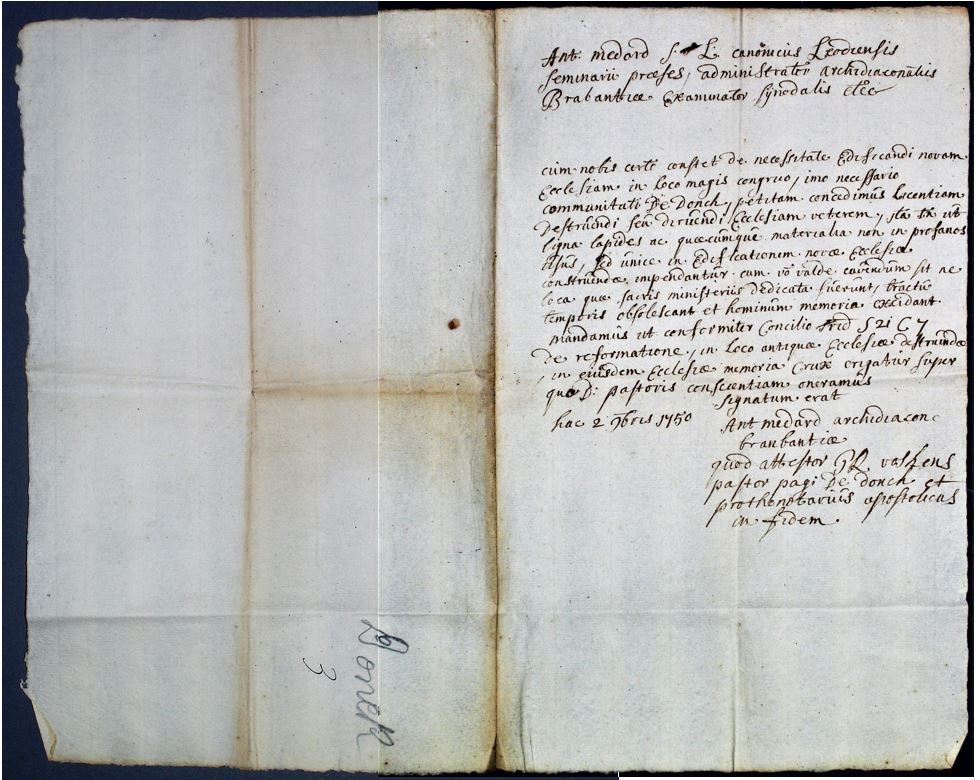 Ant: medard S. L. canonicus Leodiensis
seminarii præses, administrator archidiaconalis
Brabantiæ Examinator synodalis etc
cum nobis certe constet de necessitate Edificandi novam
Ecclesiam in loco magis congruo, imo necessario
communitati De Donck, petitam concedimus licentiam
Destruendi seu diruendi Ecclesiam veterem, ita ut
ligna lapides ac quæcumque materialia non in profanos
usus, sed unice in Edificationem novæ Ecclesiæ
construendæ impendantur. cum vo valde cavendum sit ne
loca quæ sacris ministeriis Dedicata fuerunt, tractu
temporis obsolescant et hominum memoria excidant
mandamus ut conformiter Concilio Trid S 21 C 7
de reformatione, in loco antiquæ Ecclesiæ destruendæ
, in eiusdem Ecclesiæ memoria Crux erigatur super
quo D: pastoris conscientiam oneramus
signatum erat
hac 2 9bris 1750
Ant medard archidiacon
branbantiæ
quod attestor vaskens
pastor pagi De donck et
prothonotarius apostolicus
in fidem.
Donck
3